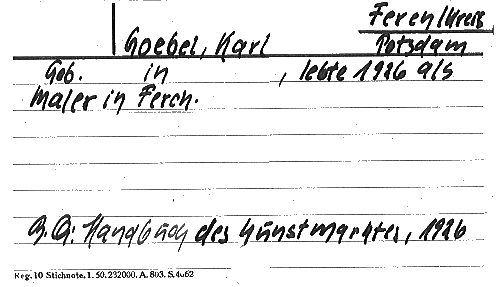 Ferch/Kreis
Goebel, Karl Potsdam
Geb. in , lebte 1926 als
Maler in Ferch.
Z.Q: Handbuch des Kunstmarktes, 1926
Reg. 10 Stichnote, 1. 50. 232000. A. 803. S. 4062